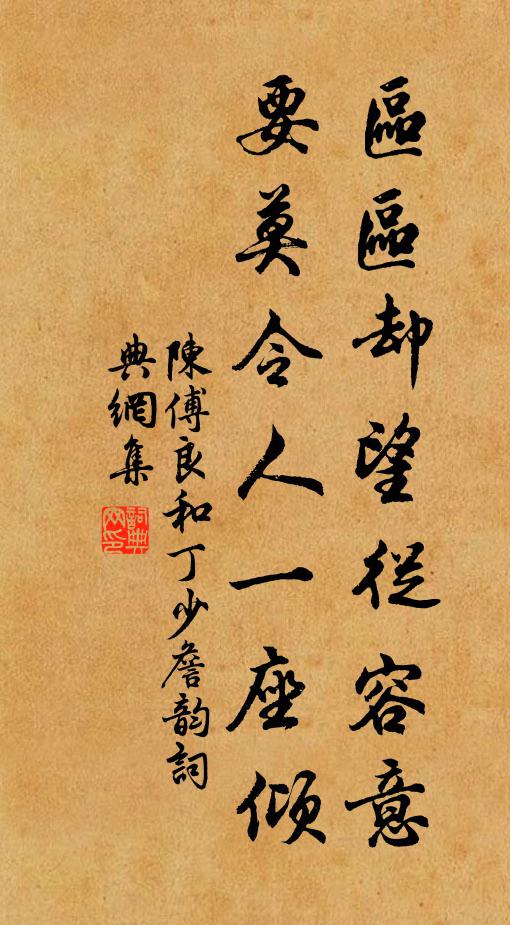 區區却望從容意
要莫令人一座傾
陳傅良和丁少詹韵詞
典網集
詞典網印